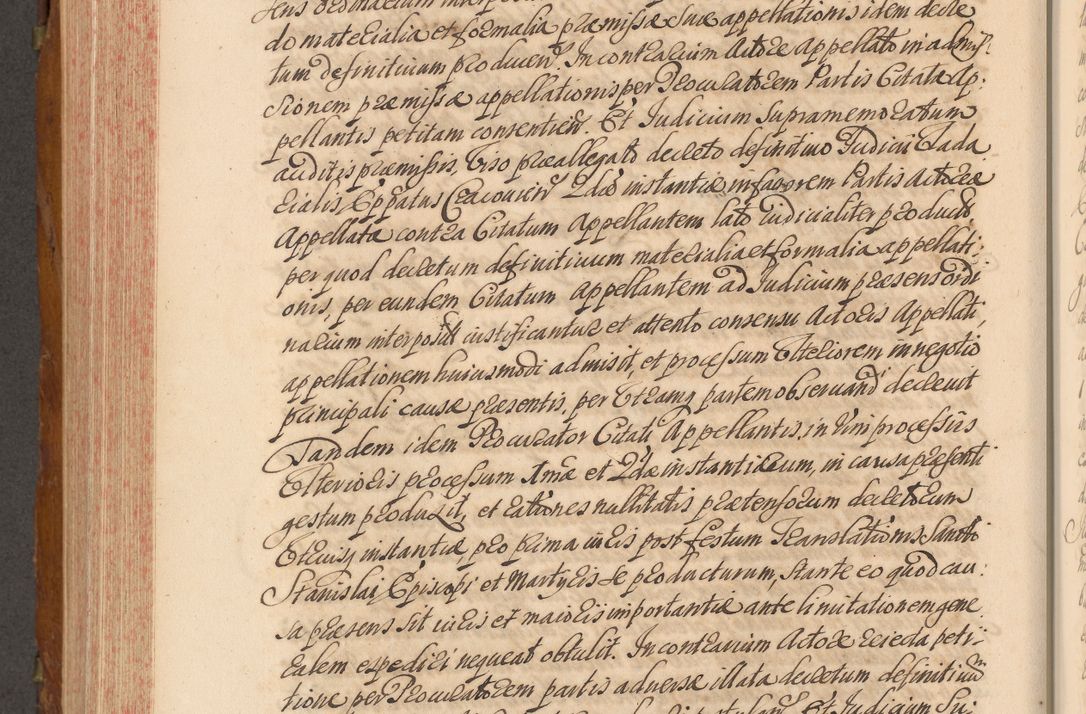 do materialia et formalia præmissæ suæ appellationis idem decre
tum definitivum producen. In contrarium Actore Appellato in admis
sionem præmissæ appellationis per Procuratorem Partis Citatæ Ap:
pellantis petitam consentien. Et Judicium Supramemoratum
auditis præmissis, Viso præallegato decreto definitivo Judicii Vada
rialis Eppatus Cracovien 2dæ instantiæ in favorem Partis Actoreæ
Appellatæ contra Citatum Appellantem lato iudicialiter producto
per quod decretum definitivum materialia et formalia appellati:
onis, per eundem Citatum Appellantem ad Judicium præsens ordi
narium interposit iustificantur et attento consensu Actoris Appellati,
appellationem huiusmodi admisit, et processum Ulteriorem in negotio
principali causæ præsentis, per Utramq partem observand decrevit
Tandem idem Procurator Citati Appellantis, in Vim processûs
Ulterioris processum 1mæ et 2dæ instantiarum, in causa præsenti
gestum produxit, et rationes nullitatis prætensorum decretorum
Utriusq instantiæ, pro prima iuris post festum Translationis Sancti
Stanislai Episcopi et Martyris se producturum, stante eo quod cau:
sa præsens sit iuris et maioris importantiæ ante limitationem gene
ralem expediri nequeat obtulit. In contrarium Actore reiecta peti:
tione per Procuratorem partis adversæ illata decretum definitivum
Et Judicium Su: